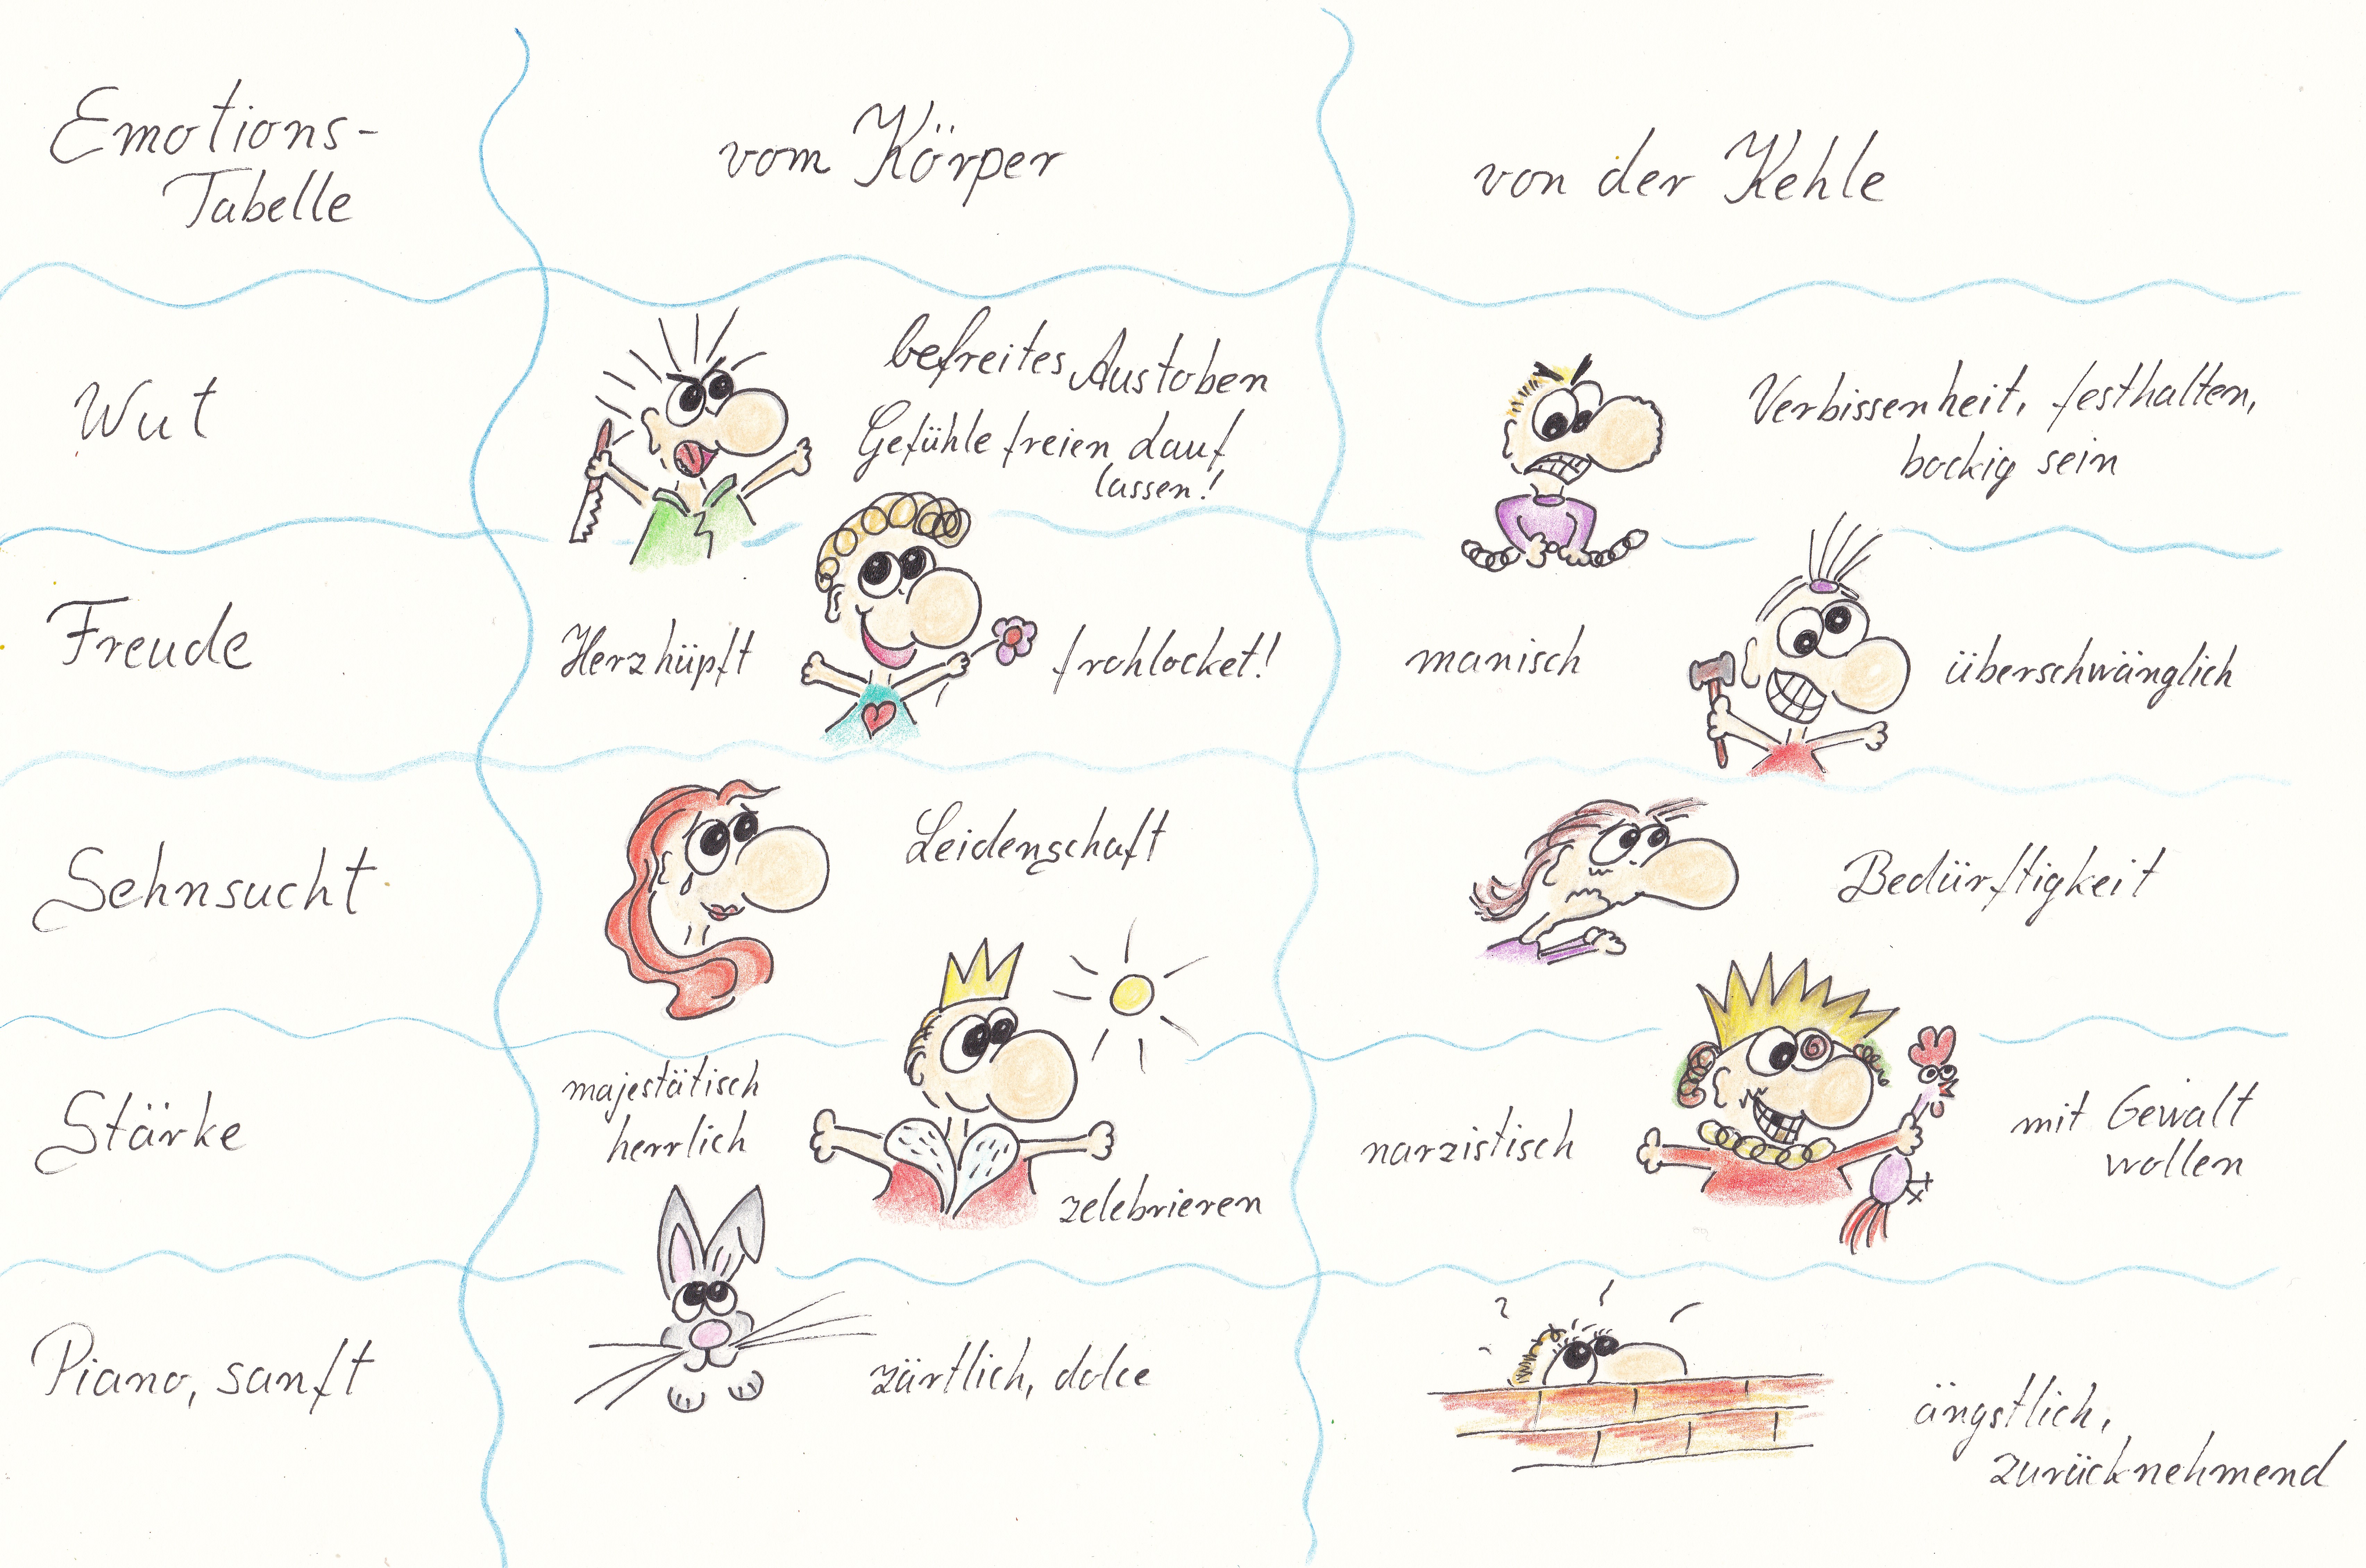 Emotions-
Tabelle
vom Körper
von der Kehle
Wut
befreites Austoben
Gefühle freien Lauf
lassen!
Verbissenheit, festhalten,
bockig sein
Freude
Herz hüpft
frohlocket!
manisch
überschwänglich
Sehnsucht
Leidenschaft
Bedürftigkeit
Stärke
majestätisch
herrlich
zelebrieren
narzistisch
mit Gewalt
wollen
Piano, sanft
zärtlich, dolce
ängstlich,
zurücknehmend